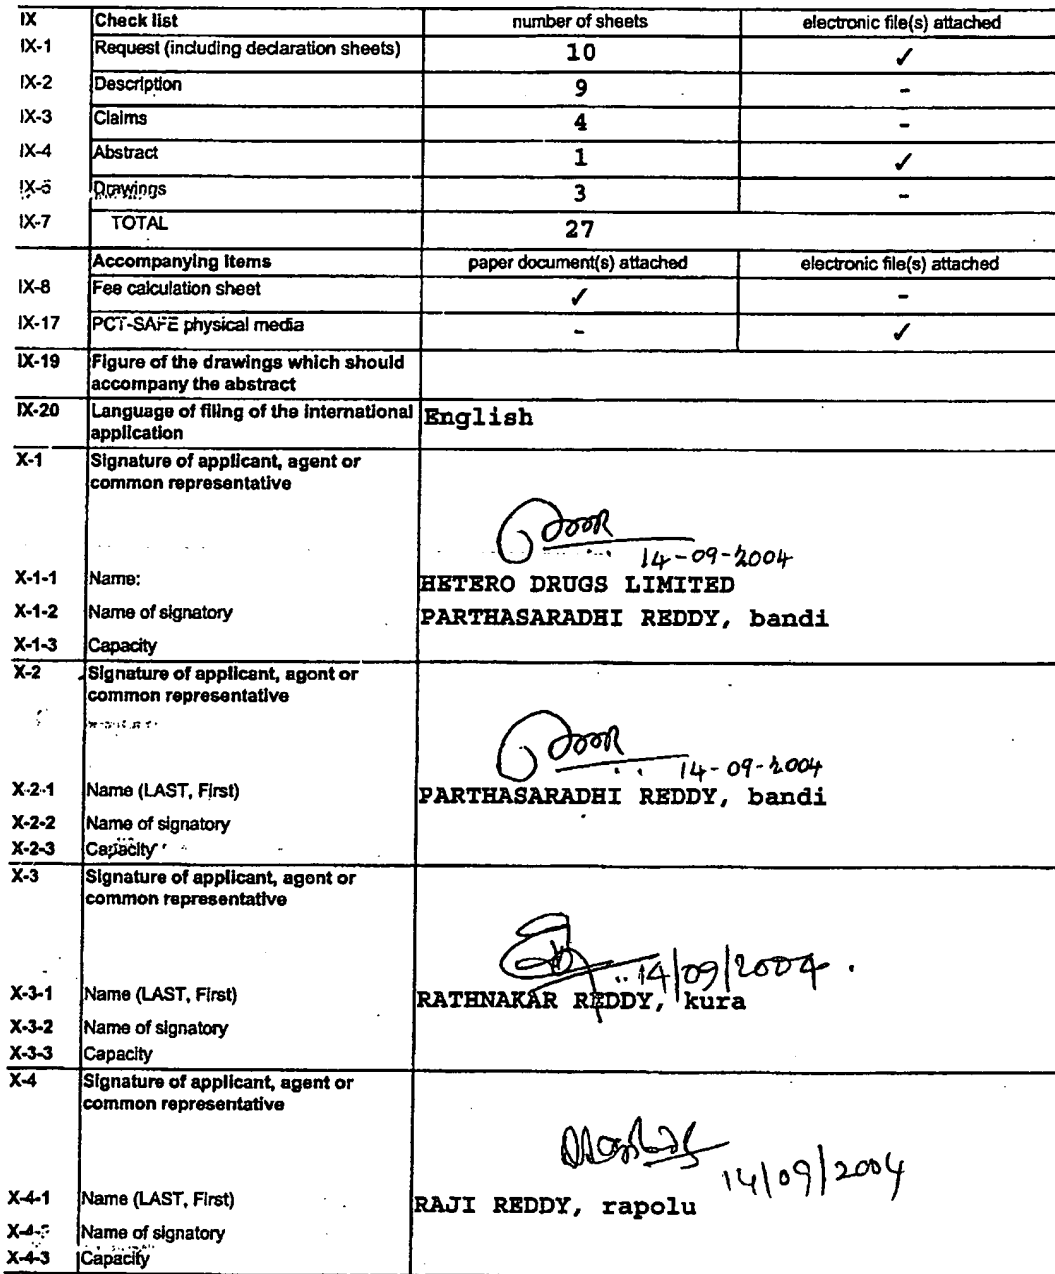 IX Check list number of sheets electronic file(s) attached
IX-1 Request (including declaration sheets) 10 ✓
IX-2 Description 9 -
IX-3 Claims 4 -
IX-4 Abstract 1 ✓
IX-5 Drawings 3 -
IX-7 TOTAL 27
Accompanying Items paper document(s) attached electronic file(s) attached
IX-8 Fee calculation sheet ✓ -
IX-17 PCT-SAFE physical media - ✓
IX-19 Figure of the drawings which should
accompany the abstract
IX-20 Language of filing of the international English
application
X-1 Signature of applicant, agent or
common representative
14-09-2004
X-1-1 Name: HETERO DRUGS LIMITED
X-1-2 Name of signatory PARTHASARADHI REDDY, bandi
X-1-3 Capacity
X-2 Signature of applicant, agent or
common representative
14-09-2004
X-2-1 Name (LAST, First) PARTHASARADHI REDDY, bandi
X-2-2 Name of signatory
X-2-3 Capacity
X-3 Signature of applicant, agent or
common representative
14/09/2004.
X-3-1 Name (LAST, First) RATHNAKAR REDDY, kura
X-3-2 Name of signatory
X-3-3 Capacity
X-4 Signature of applicant, agent or
common representative
14/09/2004
X-4-1 Name (LAST, First) RAJI REDDY, rapolu
X-4-2 Name of signatory
X-4-3 Capacity